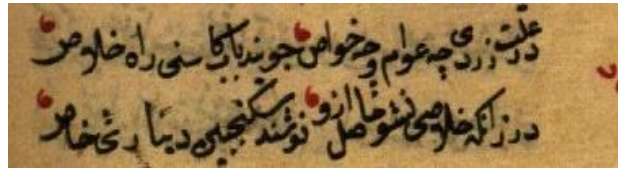 در علت زردی چه عوام و چه خواص جویند باب کاسنی راه خلاص
ور زانکه خلاصی نشود حاصل ازو نوشند سکنجبین دیناری خاص